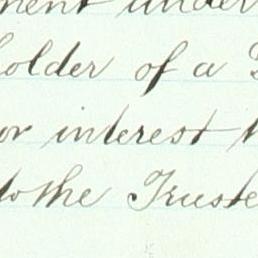 ment under
holder of a
or interest
to the Truste